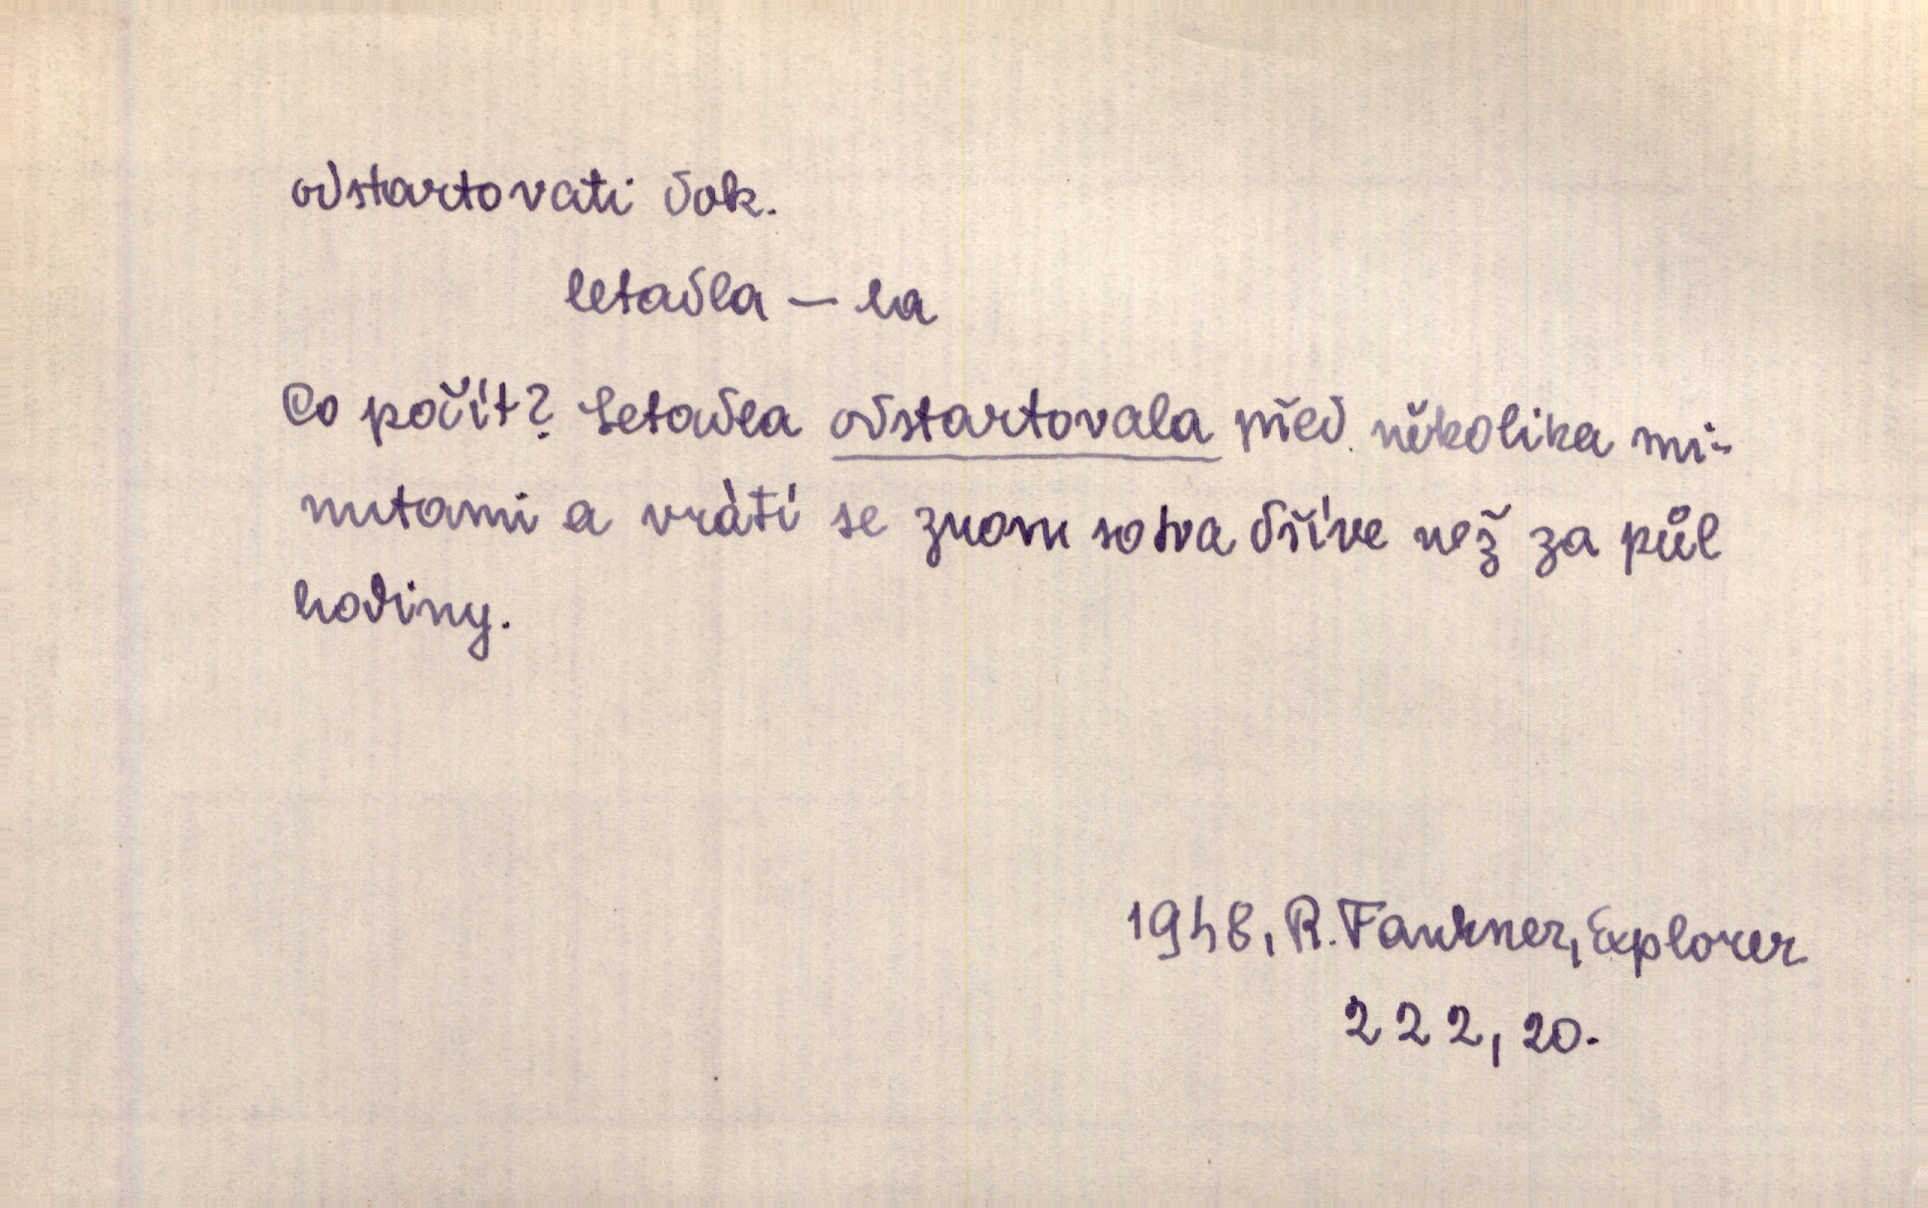 odstartovati dok.
letadla — la
Co počít? Letadla odstartovala před několika mi-
nutami a vrátí se znovu sotva dříve než za půl
hodiny.
1948, R. Faukner, Explorer
222, 20.